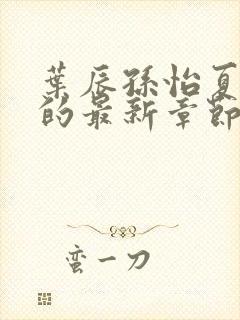 葉辰孫怡夏
的最新章節
蛮一刀